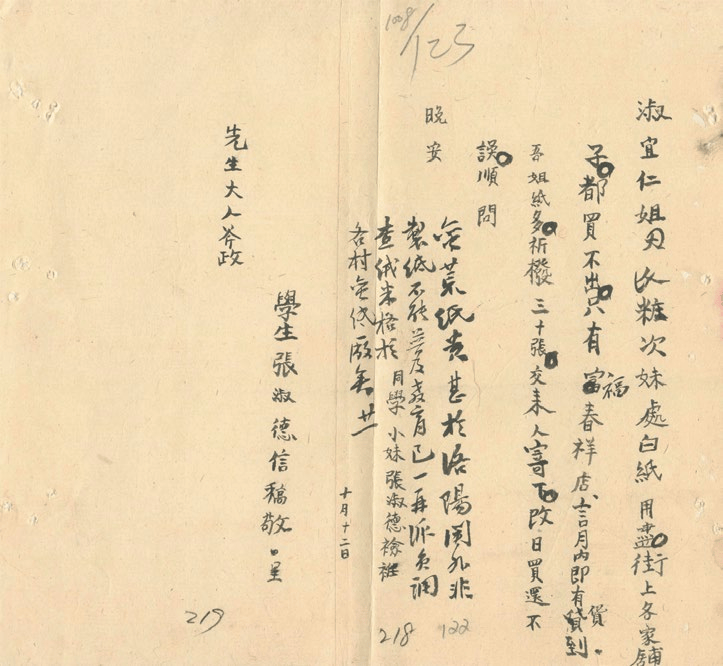 1008/123
淑宜仁姐 妝次妹處白紙用盡街上各家舖
子都買不出只有富福春祥店言月內即有貨貨到
吾姐紙多祈撥三十張交来人寄下改日買還不
誤順問
晚安
荒紙貴甚於洛陽關外非
製紙不能普及教育已一再派員調
查紙未格於
各村
同學小妹張淑德襝衽
十月十二日
先生大人斧政
學生張淑德信稿敬呈
122
218
219